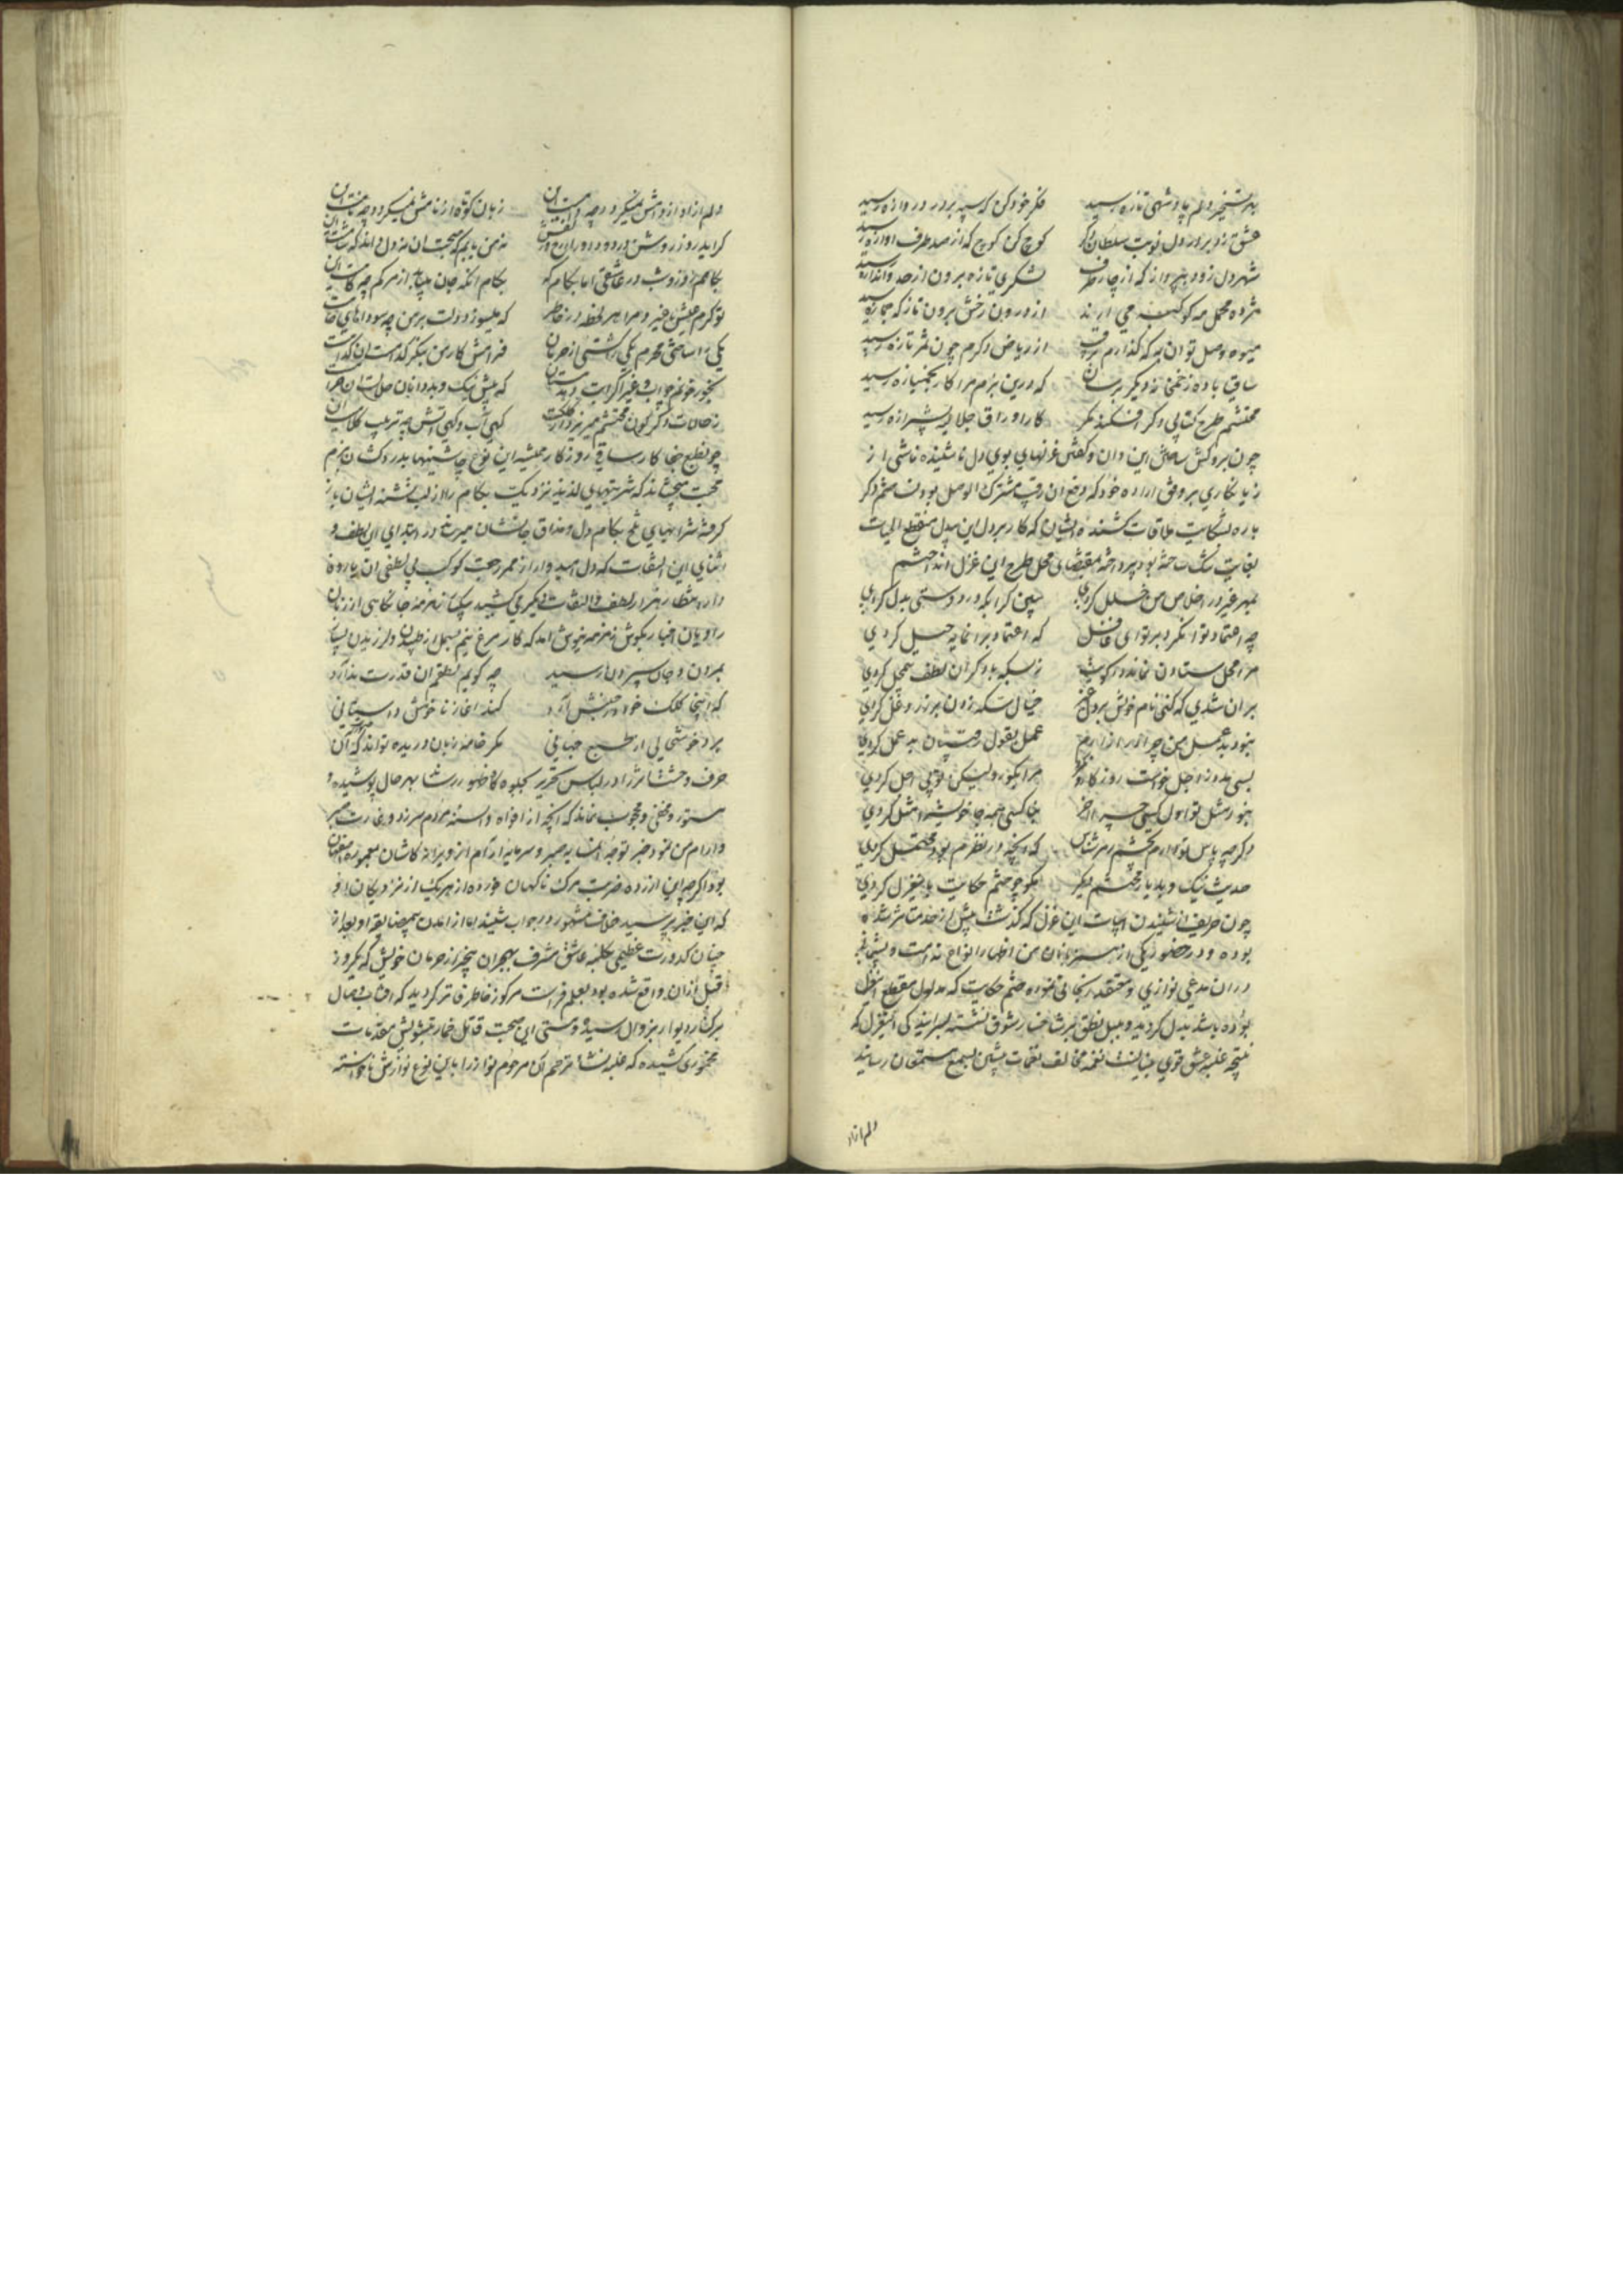 بهر تسخیر دلم پادشهی تازه رسید فکر خود کن که سپه بر در دروازه رسید
عشق زد بر در دل نوبت سلطان دگر کوچ کن کوچ که از صد طرف اوازه رسید
شهر دل زود بپرداز که از چار طرف لشکری تازه برون از حد و اندازه رسید
مژده محمل مه کوکبه می ارند از درون رخش برون تاز که جمازه رسید
میوه وصل تو ان به که گذارم برقیب از ریاض دگرم چون ثمر تازه رسید
ساقی باده ز خمخانه دیگر برسان که درین بزم مرا کار بخمیازه رسید
محتشم طرح کتابی دگر افکند مگر کار اوراق جلالیه بشیرازه رسید
چون بروکش ساختن این وان و گفتن غزلهای بوی دل ناشنیده ناشی از
زیانکاری بر وفق اراده خود که دفع ان رقیب مشترک الوصل بود نه صنم دگر
باره شکایت ملاقات کشنده ایشان که کارد بر دل این بیدل منقطع الحیات
بغایت گشت ساخته بود پرداخته بمقتضای محل طرح این غزل انداختم
بمهر غیر در اخلاص من خلل کردی ببین کرا بکه در دوستی بدل کردی
چه اعتماد توان کرد بر تو ای غافل که اعتماد برانمایه حیل کردی
مرا محل ستادن نماند در کویت ز بسکه با دگران لطف بیمحل کردی
بران شدی که کنی نام خویش بر دل غیر خیال سکه زدن بر زر دغل کردی
نبود بد عمل من چرا در ازارم عمل بقول رقیبان بد عمل کردی
بسی مدد ز اجل خواست روزگار و مرا بگور و لیکن تو بی اجل کردی
نبود مثل تو اول کسی چسان اخر جفاکشی همه جا خویش را مثل کردی
دگر چه پاس تو دارم بچشم مهر شناس که انچه در نظرم بود محتمل کردی
حدیث نیک و بد یار محتشم دیگر مگو چو ختم حکایت باین غزل کردی
چون حریف از شنیدن ابیات این غزل که گذشت پیش از خدمت شرمنده
بوده و در حضور یکی از همزبانان من اظهار انواع ندامت و پشیمانی
دران مدعی نوازی و معتقد رنجانی نموده ختم حکایت که مدلول مقطع این غزل
بوده باشد بدل گردید و بلبل نطق بر شاخسار شوق نشسته بسرایندگی این غزل که
نتیجه غلبه عشق قوی بنیانست نغمه مخالف نغمات پیشین بسمع مستمعان رسانید
دلم ازاد
دلم ازاد از دامش نمیگردد چه دامست این زبان کوتاه از نامش نمیگردد چه نامست این
گراید روز روشن در دود دوران نه من یابم که صبحت ان نه دل داند که شامست این
بکامم روز و شب در عاشقی اما بکام که بکام انکه جان میابد از مرگم چه کامست این
تو گرم عیش با غیر و مرا هر لحظه در خاطر که میسوزد دلت بر من چه سوداهای خامست این
یکی را ساختی محرم یکی را کشتی از حرمان فرامش کار من بنگر کدامست ان کدامست این
ز حالات دگرگون محتشم میریزد از کلکت گهی اب و گهی اتش چه ترتیب کلامست این
چو نطبع جفاکار ساقی روزگار همیشه این نوع چاشنیها بدردکشان بزم
محبت میچشاند که شربتهای لذیذ نزدیک بکام را از لب تشنه ایشان باز
گرفته شرابهای تلخ بکام دل و مذاق جانشان میرساند در ابتدای این لطف و
اثنای این التفات که دل امیدوار از ممر رجعت کوکب بی لطفی ان یار وفا
دار انتظار هزار لطف و التفات دیگر میکشید یکتا زمزمه جانکاهی از زبان
راویان اخبار بگوش زمزمه نیوش امد که کار مرغ نیم بسمل از طپیدن و لرزیدن
بمردن و جان سپردن رسید چه گویم نطقم ان قدرت ندارد
که اینجا کلک خود در جنبش ارد کند اغاز ناخوش داستانی
برد خوشحالی از طبع جهانی مگر خامه زبان دریده تواند که ان
حرف وحشت اثر را در لباس تحریر بجلوه گاه ظهور رساند بهر حال پوشیده و
مستور و مخفی و محجوب نماند که انچه از افواه و السنه مردم سر زد و غارت صبر
و ارام من نمود خبر توجه ان سایه صبر و سرمایه ارام از ویرانه کاشان بمعموره اصفهان
بود اگر چه این ازرده ضربت مرگ ناگهان خورده از هر یک از نزدیکان او
که این خبر پرسید خلاف مشهور در جواب شنید
چنان کدورت عظیمی بکلبه عاشق مشرف بهجران بیخبر از حرمان خویش که یکروز
قبل ازان واقع شده بود بعلم فراست مرکوز خاطر فاتر گردید که افتاب وصال
بر کنار دیوار بزوال رسیده و مستی این صحبت قاتل خمار بتشویش مقدمات
مخموری کشیده که غلبه نشأ ترحم ان مرحوم نواز را باین نوع نوازش ناخواسته